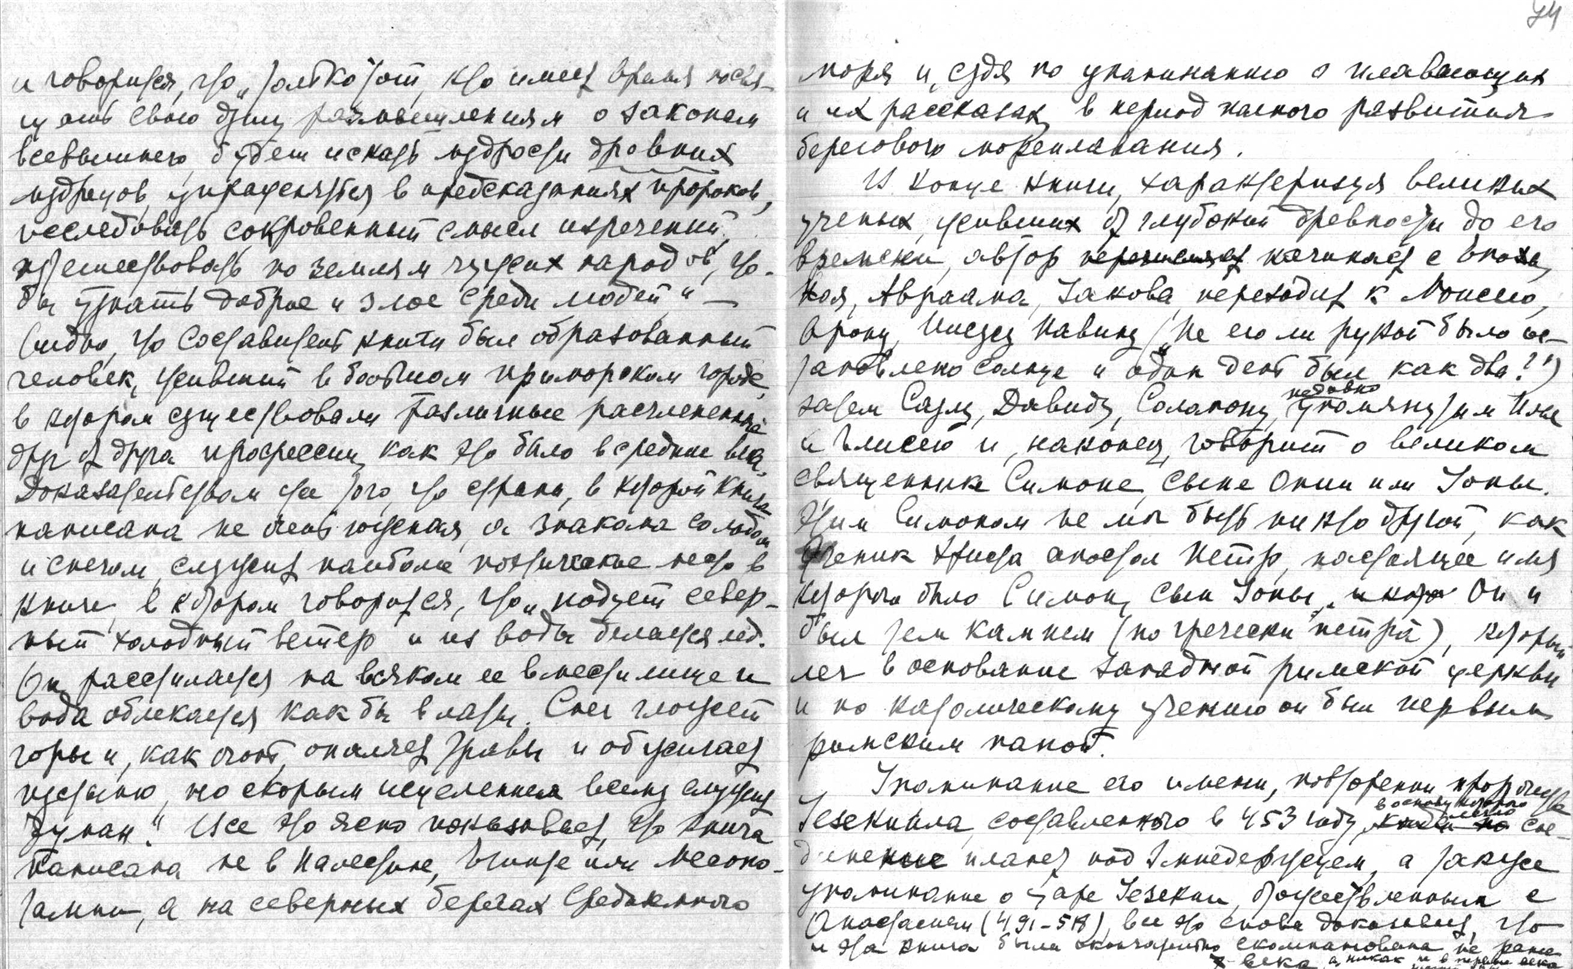 и говорится, что „только тот, кто имеет время посвя-
щать свою душу размышлениям о законах
всевышнего, будет искать мудрости древних
мудрецов, упражняться в предсказаниях пророков,
исследовать сокровенный смысл изречений,
путешествовать по землям чужих народов, что-
бы узнать доброе и злое среди людей" —
Видно, что составитель книги был образованный
человек, живший в большом приморском городе,
в котором существовали различные расчлененные
друг от друга профессии, как это было в средние века.
Доказательством же того, что страна, в которой книга
написана не очень южная, а знакома со льдом
и снегом, служит наиболее поэтическое место в
книге, в котором говорится, что „подует север-
ный холодный ветер и из воды делается лед.
Он расстилается на всяком ее вместилище и
вода облекается как бы в латы. Снег глодает
горы и, как огонь, опаляет травы и обжигает
пустыню, но скорым исцелением всему служит
туман." Все это ясно показывает, что книга
написана не в Палестине, Египте или Месопо-
тамии, а на северных берегах Средиземного
74
моря и, судя по упоминанию о плавающих
и их рассказах, в период полного развития
берегового мореплавания.
В конце книги, характеризуя великих
ученых, живших от глубокой древности до его
времени, автор начинает с Еноха,
Ноя, Авраама, Иакова, переходит к Моисею,
Арону, Иисусу Навину („Не его ли рукой было ос-
тановлено солнце и один день был как два?")
затем Саулу, Давиду, Соломону, недавно упомянутым Илье
и Елисею и, наконец, говорит о великом
священнике Симоне, сыне Онии или Ионы.
Этим Симоном не мог быть никто другой, как
ученик Христа апостол Петр, настоящее имя
которого было Симон, сын Ионы. Он и
был тем камнем (по гречески „петра"), который
лег в основание западной римской церкви
и по католическому учению он был первым
римским папой.
Упоминание его имени, повторение пророчества
Иезекиила, составленного в 453 году, в основу которого легло сое-
динение планет под Змиедержцем, а также
упоминание о царе Иезекии, тожественным с
Анастасием (491–518), все это снова доказывает, что
и эта книга была окончательно скомпанована не ранее
века, а никак не в первые века